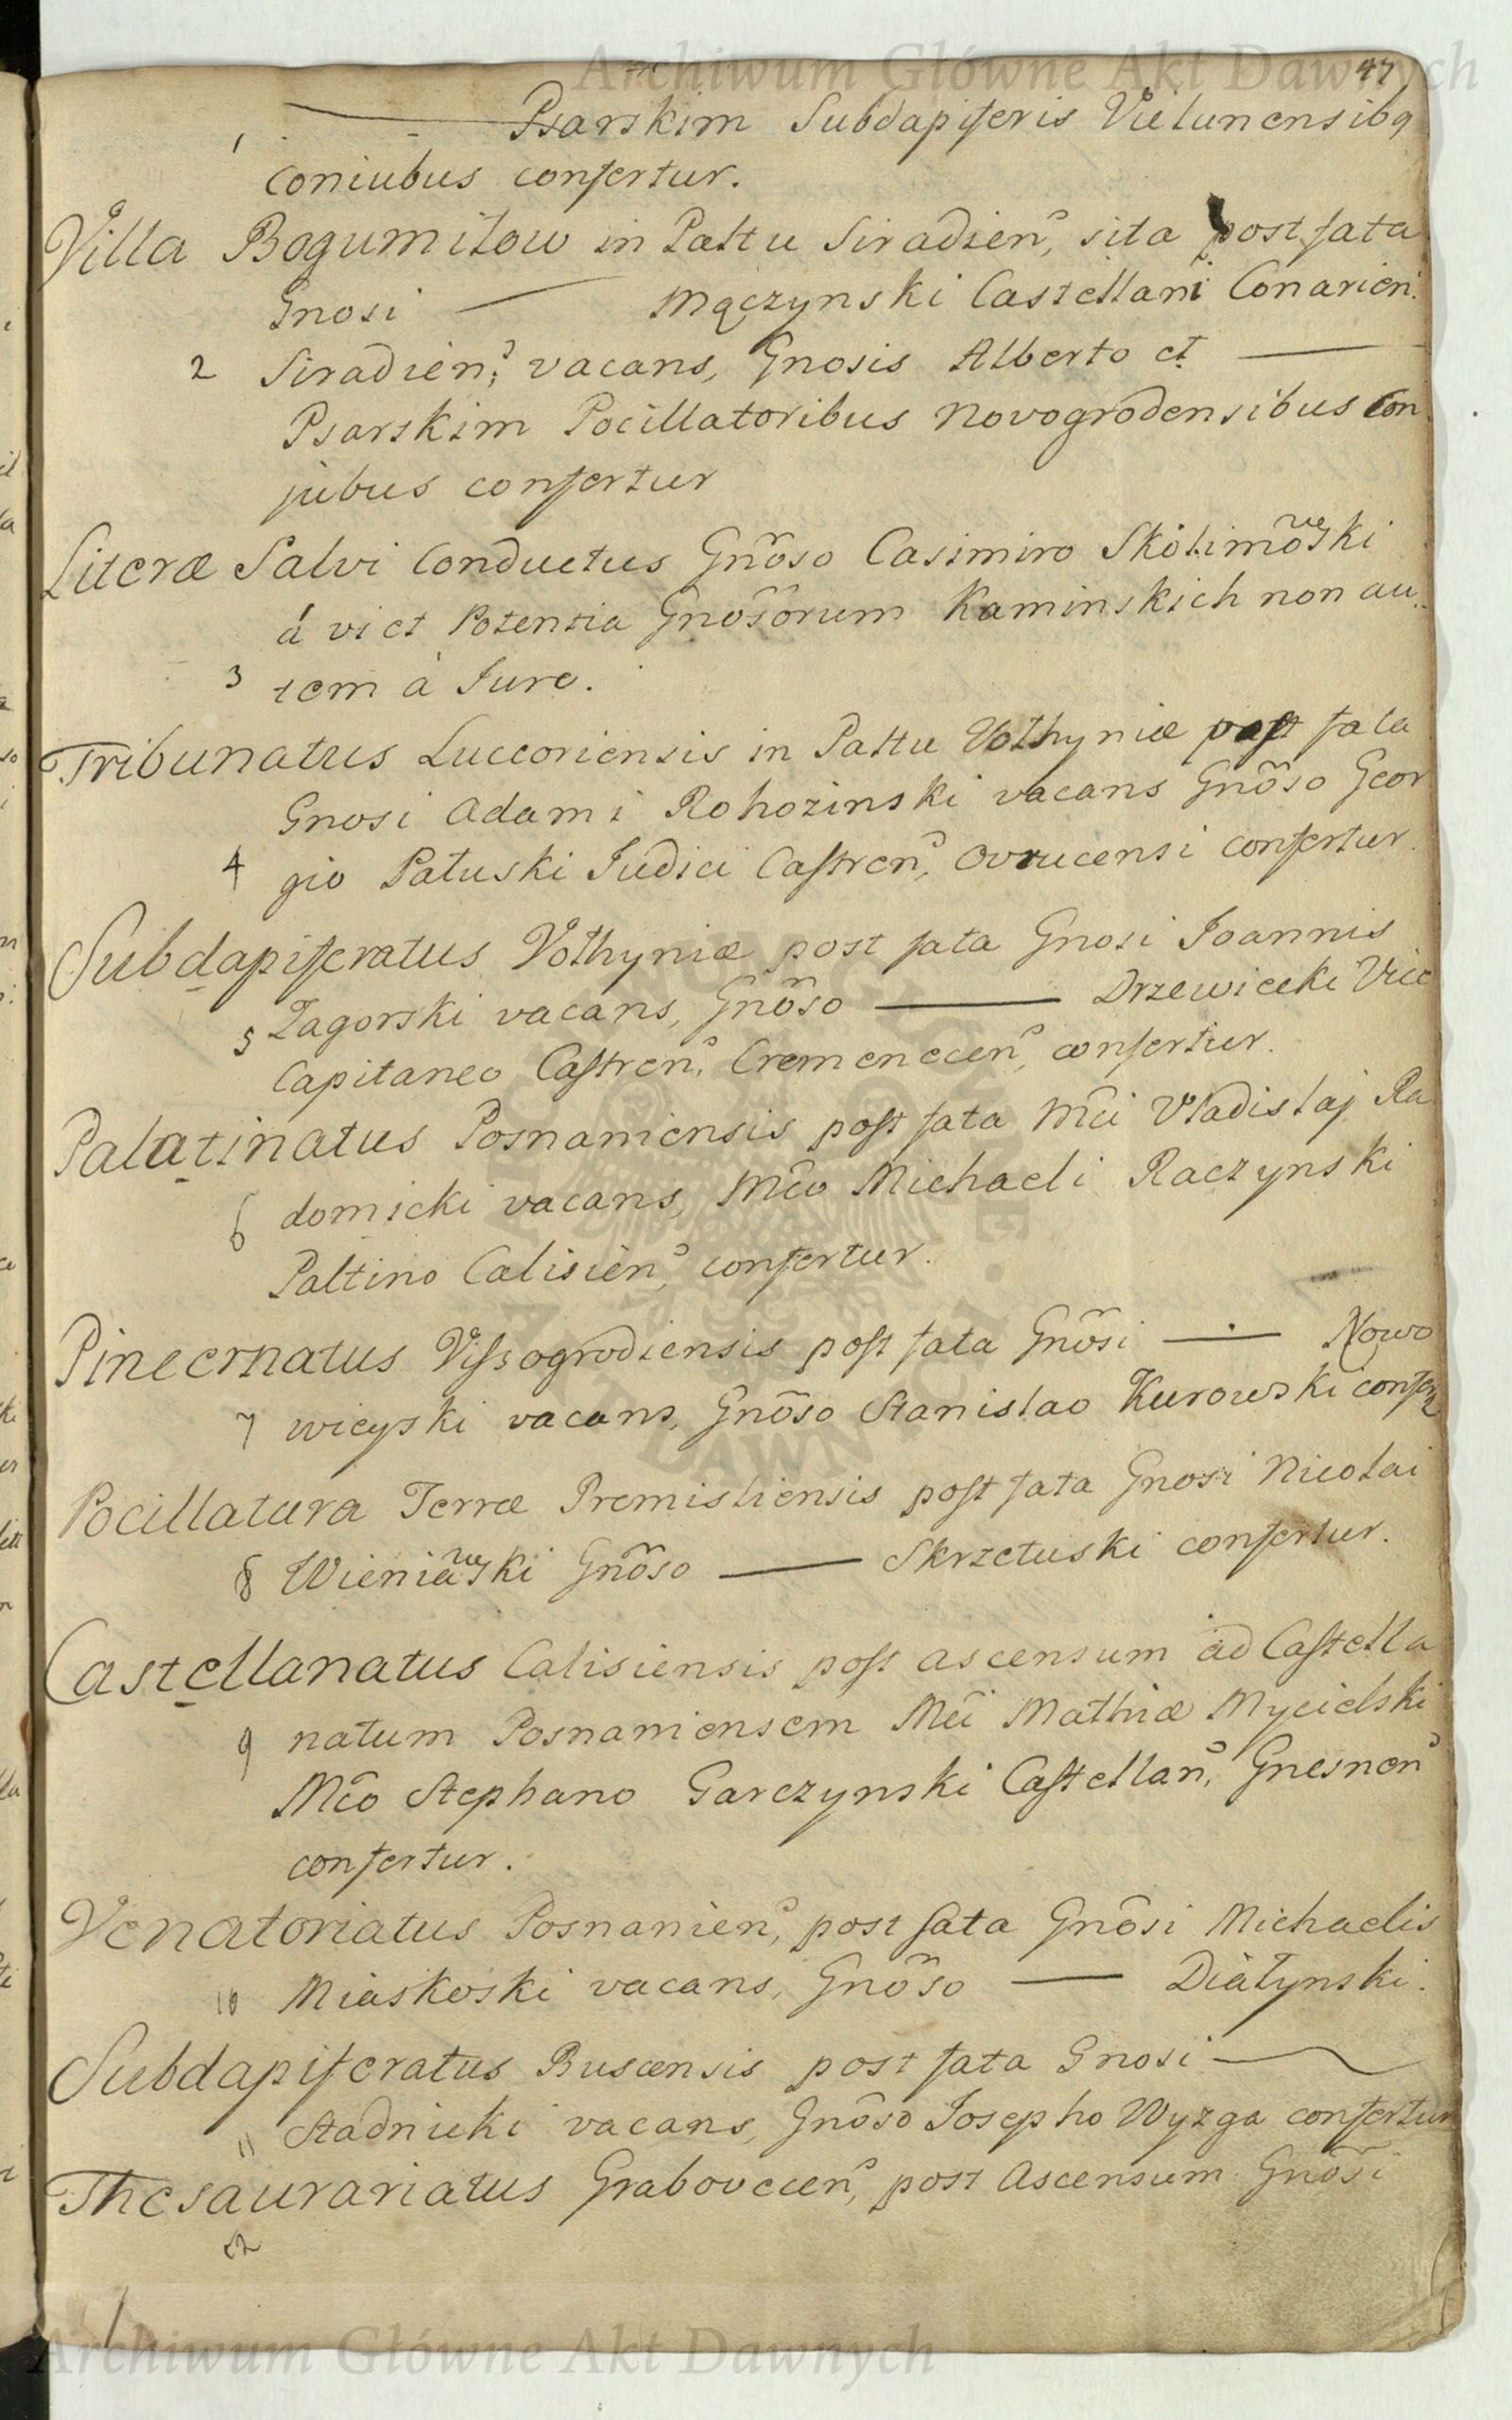 Archiwum Główne Akt Dawnych
47
Psarskim Subdapiferis Vielunensibq
1
coniubus confertur.
Villa Bogumiłow in Pałtu Siradien, sita post fata
Gnosi — Mączynski Castellani Conarien.
2 Siradien; vacans, Gnosis Alberto et —
Psarskim Pocillatoribus Novogrodensibus Con
jubus confertur
Literæ Salvi Conductus Gnoso Casimiro Skolimowski
á vi et Potentia Gnosorum Kaminskich non au
3 tem á Jure.
Tribunatus Luccoriensis in Pałtu Vołhyniæ post fata
Gnosi Adami Rohozinski vacans Gnoso Geor
4 gio Pałuski Judici Castren, Ovrucensi confertur.
Subdapiferatus Vołhyniæ post fata Gnosi Joannis
5 Zagorski vacans, Gnoso — Drzewiecki Vice
Capitaneo Castren, Cremenecen, confertur.
Palatinatus Posnaniensis post fata Mci Vladislaj Ra
6 domicki vacans, Mco Michaeli Raczynski
Paltino Calisien, confertur.
Pincernatus Vissogrodiensis post fata Gnosi — Nowo
7 wieyski vacans, Gnoso Stanislao Kurowski confer
Pocillatura Terræ Premisliensis post fata Gnosi Nicolai
8 Wieniawski Gnoso — Skrzetuski confertur.
Castellanatus Calisiensis post ascensum ad Castella
9 natum Posnaniensem Mci Mathiæ Mycielski
Mco Stephano Garczynski Castellan, Gnesnen
confertur.
Venatoriatus Posnanien, post fata Gnosi Michaelis
10 Miaskoski vacans, Gnoso — Diałynski.
Subdapiferatus Buscensis post fata Gnosi —
11 Stadnicki vacans, Gnoso Josepho Wyzga confertur
Thesaurariatus Grabovecen, post Ascensum Gnosi
12
Archiwum Główne Akt Dawnych